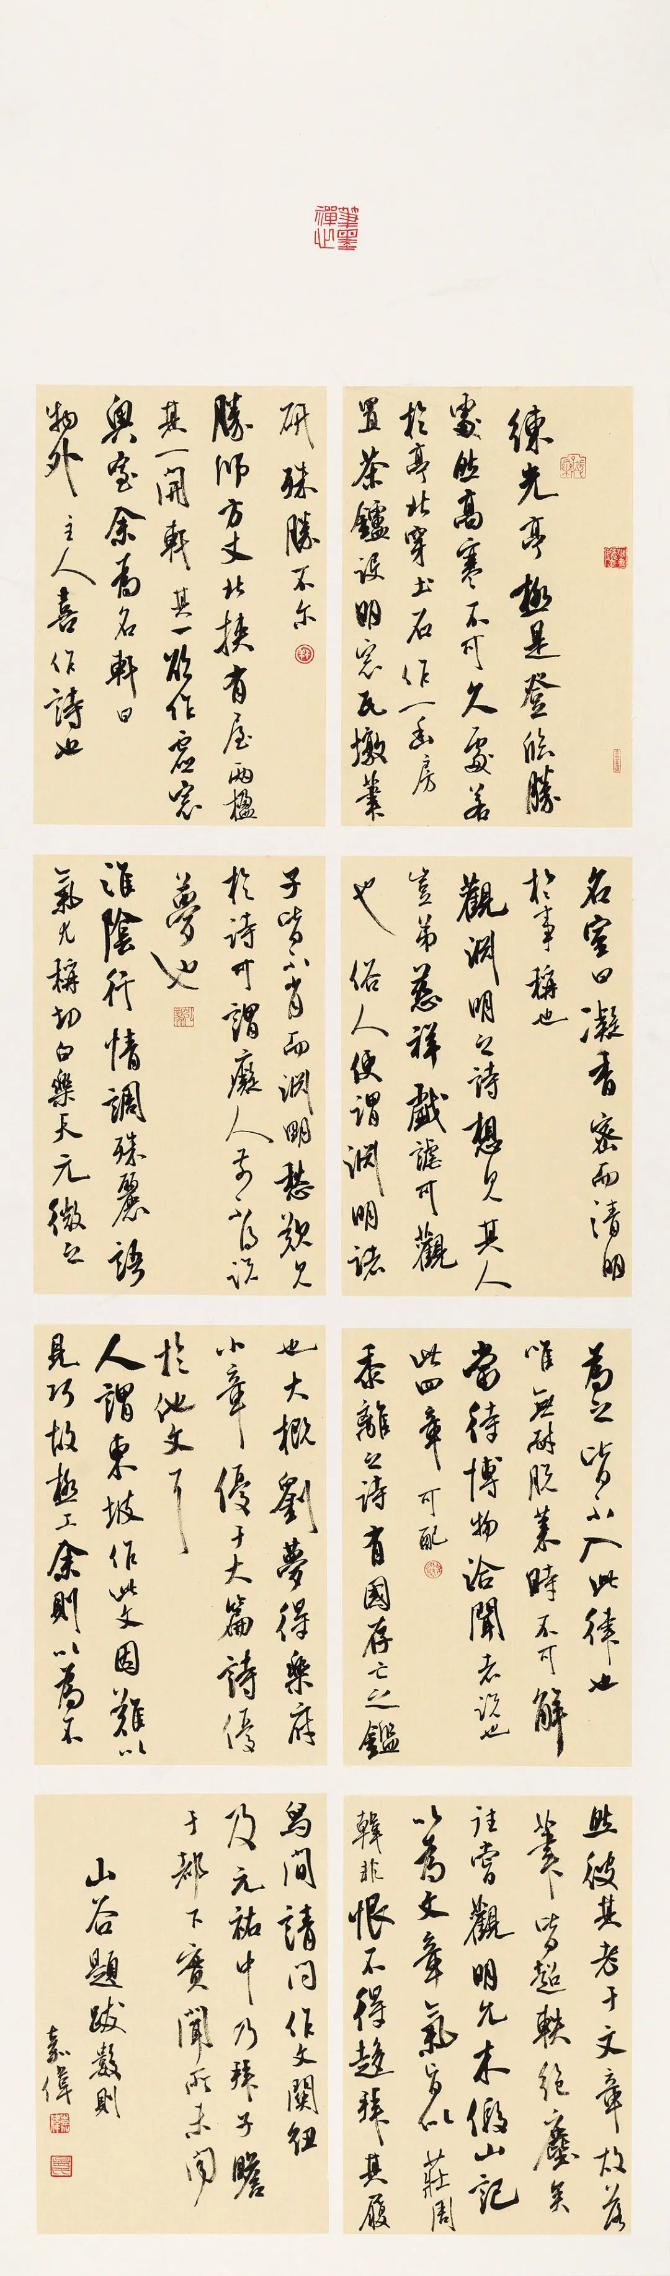 筆墨禪心
練光亭極是登臨勝
處然高寒不可久處若
於亭北穿土石作一幽房
置茶鑪設明窓瓦墩筆
研殊勝不尔
勝師方丈北挾有屋兩楹
其一開軒其一欲作虛窓
奥室余為名軒曰
物外主人喜作詩也
名室曰凝香密而清明
於事稱也
觀淵明之詩想見其人
豈弟慈祥戲謔可觀
也俗人便謂淵明諸
子皆不肖而淵明愁歎見
於詩可謂癡人前不得說
夢也
淮陰行情調殊麗語
氣尤稱切白樂天元微之
為之皆不入此律也
唯無耐脫菜時不可解
當待博物洽聞者說也
此四章可配
黍離之詩有國存亡之鑑
也大概劉夢得樂府
小章優于大篇詩優
於他文耳
人謂東坡作此文因難以
見巧故極工余則以為不
然彼其老于文章故落
筆皆超軼絕塵矣
往嘗觀明允木假山記
以為文章氣旨似莊周
韓非恨不得趍拜其履
舄間請問作文關紐
及元祐中乃拜子瞻
于都下實聞所未聞
山谷題跋數則
嘉偉